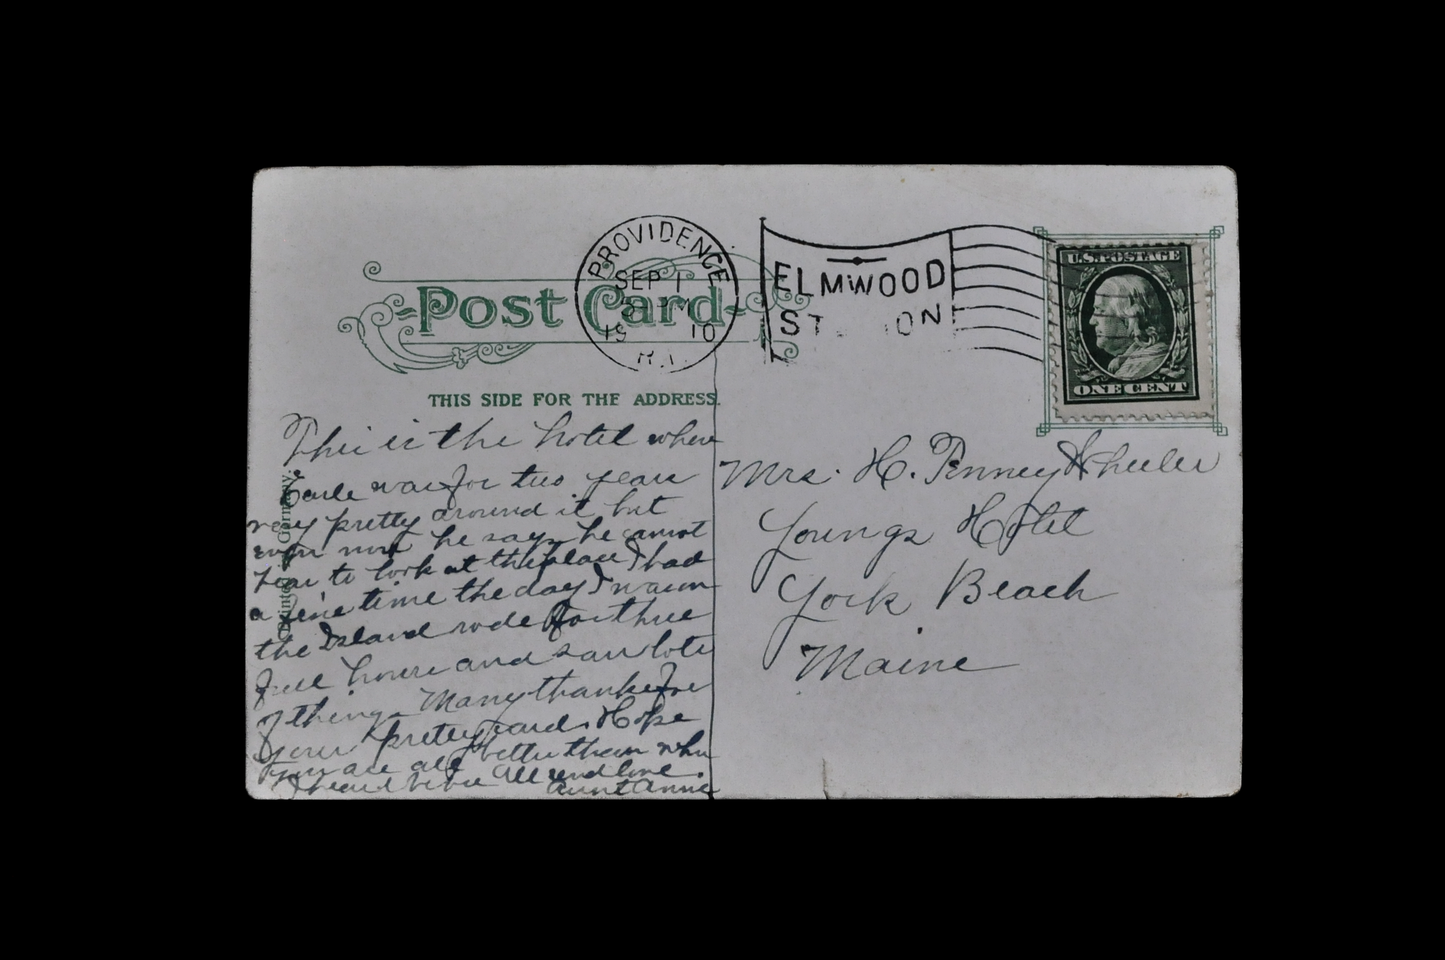 PROVIDENCE
SEP 1
19 10
R.I.
ELMWOOD
ST ION
U.S. POSTAGE
ONE CENT
Post Card
THIS SIDE FOR THE ADDRESS.
This is the hotel where
Earle was for two years
very pretty around it but
even now he says he cannot
bear to look at the place I had
a fine time the day I was on
the Island rode for three
full hours and saw lots
of things Many thanks for
your pretty card. Hope
you are all better than when
I heard before All send love.
Aunt Annie
Mrs. H. Penney Wheeler
Youngs Hotel
York Beach
Maine
Printed Germany.